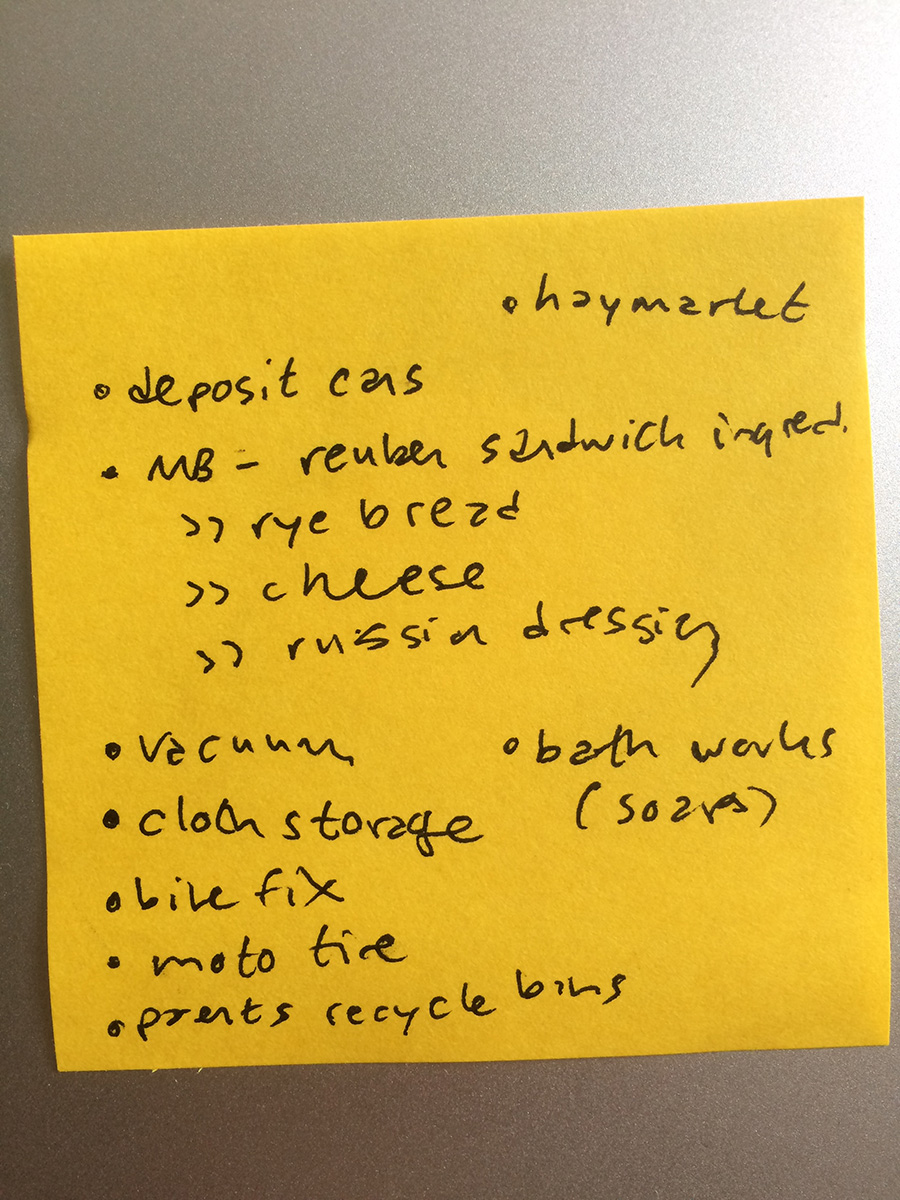 • haymarket
• deposit cans
• MB - reuben sandwich ingred.
>> rye bread
>> cheese
>> russian dressing
• vacuum
• bath works
(soaps)
• cloth storage
• bike fix
• moto tire
• parents recycle bins